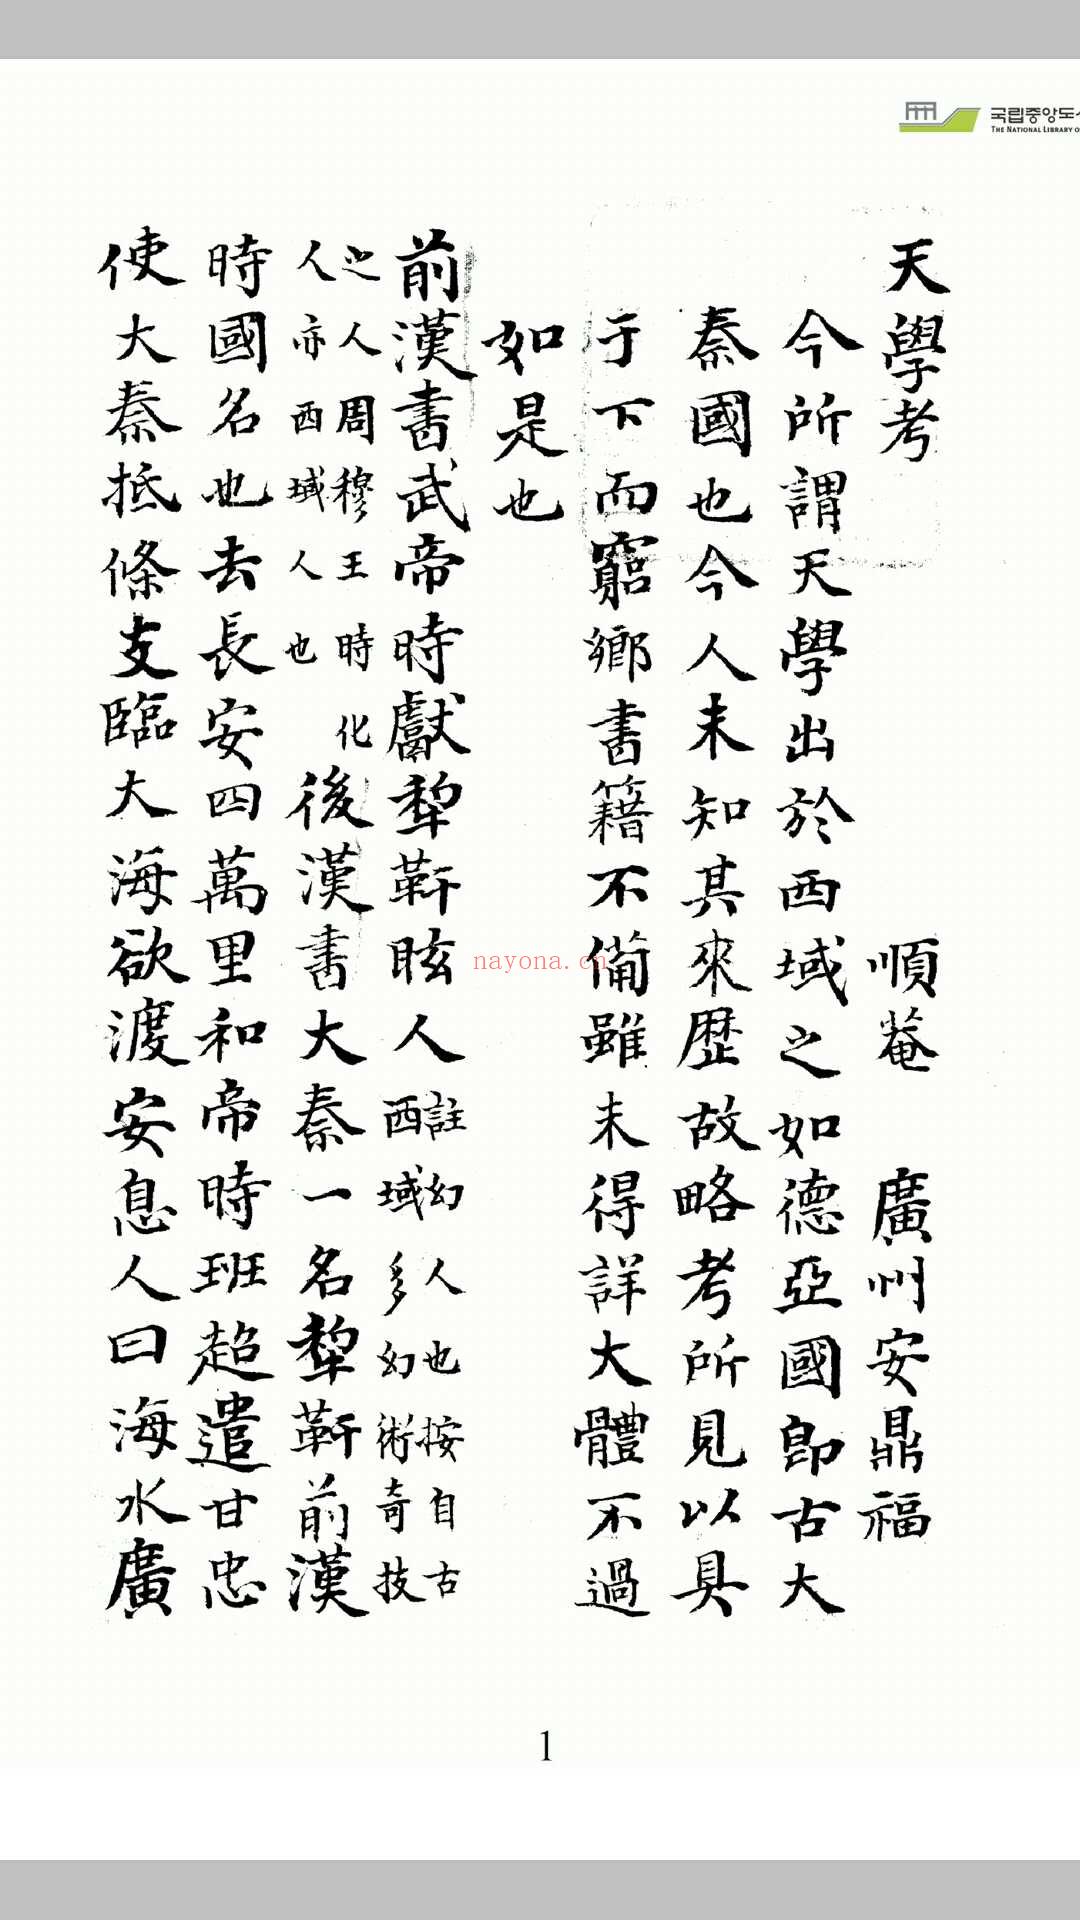 국립중앙도
THE NATIONAL LIBRARY O
天學考
順菴 廣州安鼎福
今所謂天學出於西域之如德亞國卽古大
秦國也今人未知其來歷故略考所見以具
于下而窮鄉書籍不備雖未得詳大體不過
如是也
前漢書武帝時獻犂靬眩人
註幻人也按自古
西域多幻術奇技
之人周穆王時化
人亦西域人也
後漢書大秦一名犂靬前漢
時國名也去長安四萬里和帝時班超遣甘忠
使大秦抵條支臨大海欲渡安息人曰海水廣
nayona.cn
1